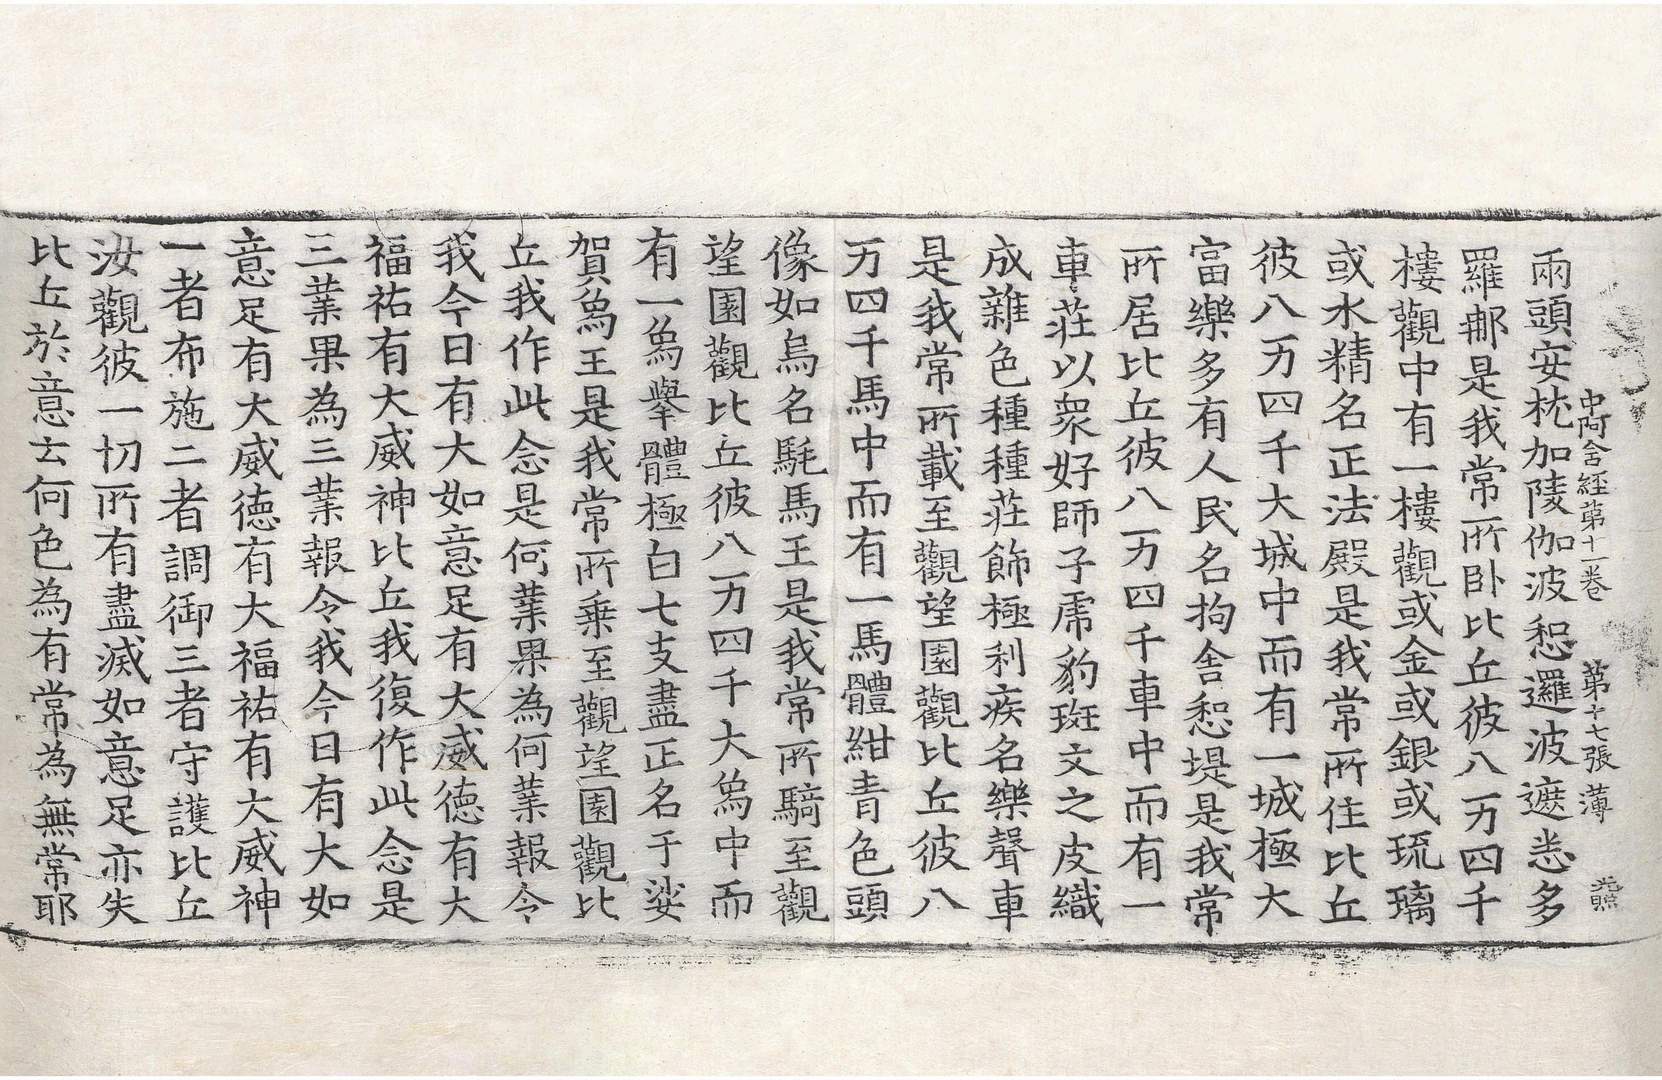 中阿含經第十一卷 第十七張 薄
兩頭安枕加陵伽波惒邏波遮悉多
羅那是我常所卧比丘彼八万四千
樓觀中有一樓觀或金或銀或琉璃
或水精名正法殿是我常所住比丘
彼八万四千大城中而有一城極大
富樂多有人民名拘舍惒堤是我常
所居比丘彼八万四千車中而有一
車莊以衆好師子虎豹斑文之皮織
成雜色種種莊飾極利疾名樂聲車
是我常所載至觀望園觀比丘彼八
万四千馬中而有一馬體紺青色頭
像如烏名䭷馬王是我常所騎至觀
望園觀比丘彼八万四千大象中而
有一象舉體極白七支盡正名于娑
賀象王是我常所乗至觀望園觀比
丘我作此念是何業果為何業報令
我今日有大如意足有大威德有大
福祐有大威神比丘我復作此念是
三業果為三業報令我今日有大如
意足有大威德有大福祐有大威神
一者布施二者調御三者守護比丘
汝觀彼一切所有盡滅如意足亦失
比丘於意云何色為有常為無常耶